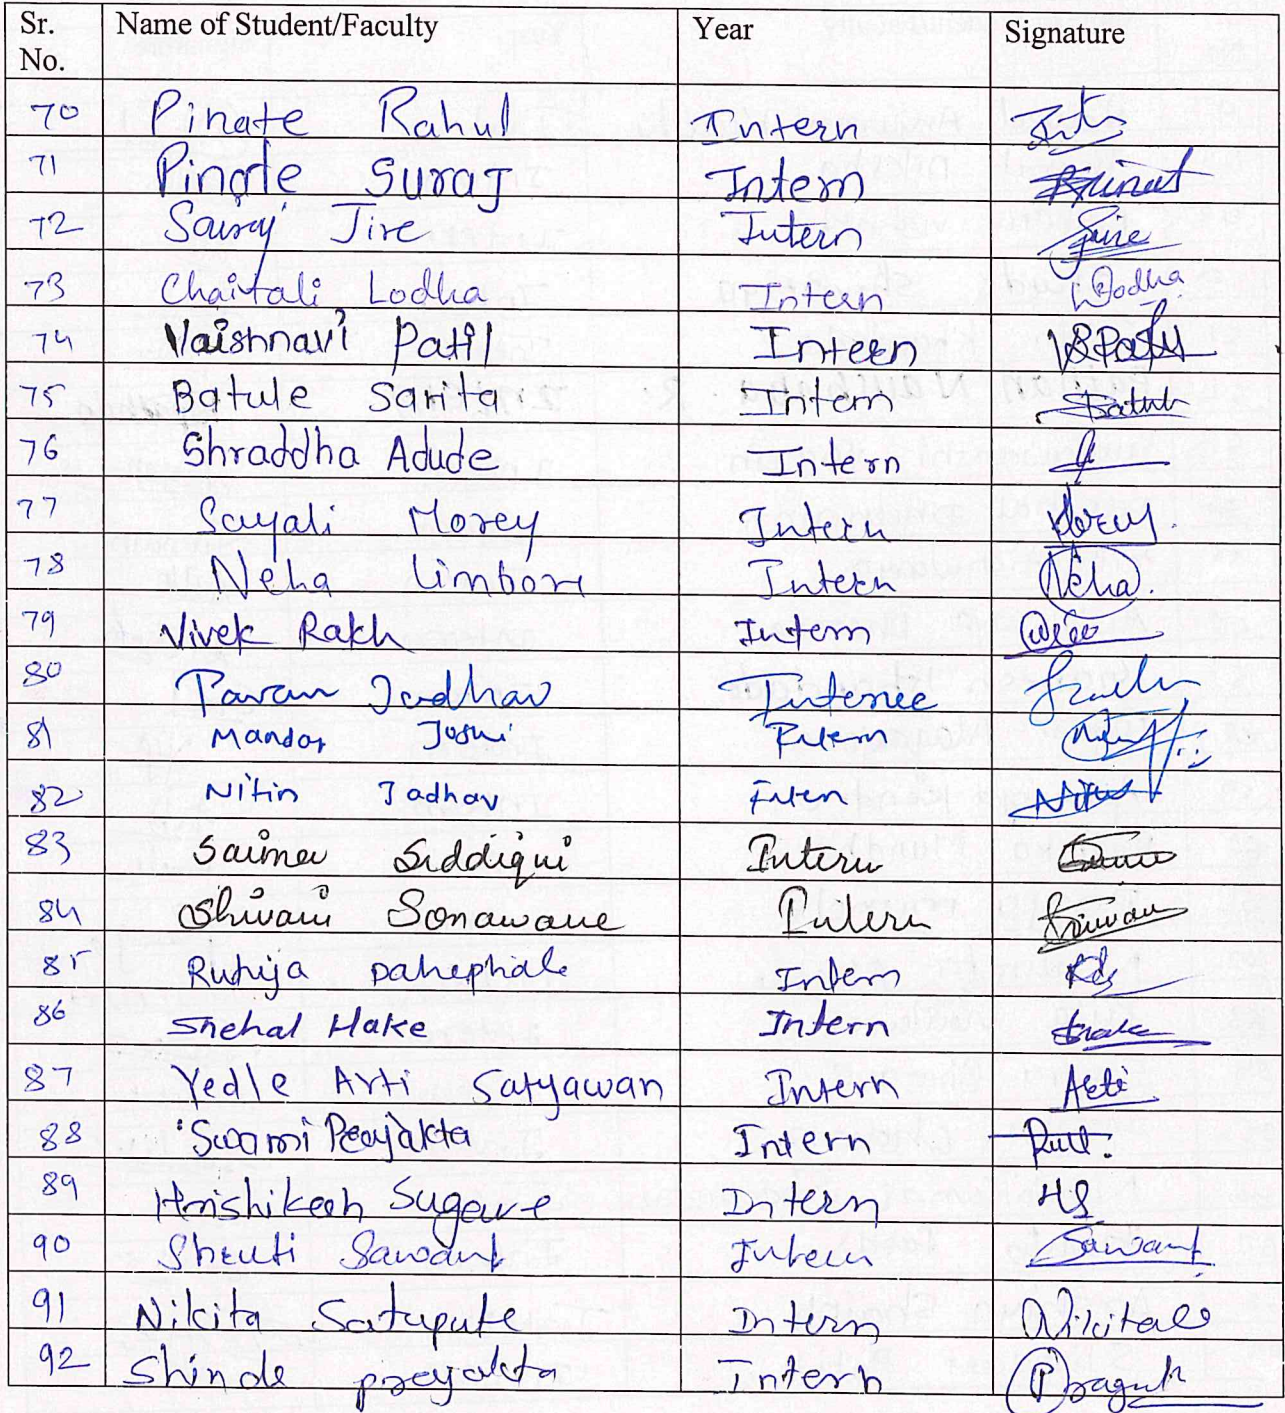 Sr. No. Name of Student/Faculty Year Signature
70 Pinate Rahul Intern
71 Pinate Suraj Intern
72 Sairaj Jire Intern Jire
73 Chaitali Lodha Intern Lodha
74 Vaishnavi Patil Intern VSPatil
75 Batule Sarita Intern Batule
76 Shraddha Adude Intern
77 Sayali Morey Intern Morey
78 Neha Limbore Intern Neha
79 Vivek Rakh Intern
80 Pavan Jadhav Internee
81 Mandar Joshi Intern
82 Nitin Jadhav Intern Nitin
83 Saima Siddiqui Intern
84 Shivani Sonawane Intern
85 Rutuja Dahephale Intern
86 Snehal Hake Intern Hake
87 Yedle Arti Satyawan Intern Arti
88 Swami Prajakta Intern
89 Hrishikesh Sugave Intern HS
90 Shruti Sawant Intern Sawant
91 Nikita Satupute Intern Nikita
92 Shinde prajakta Intern